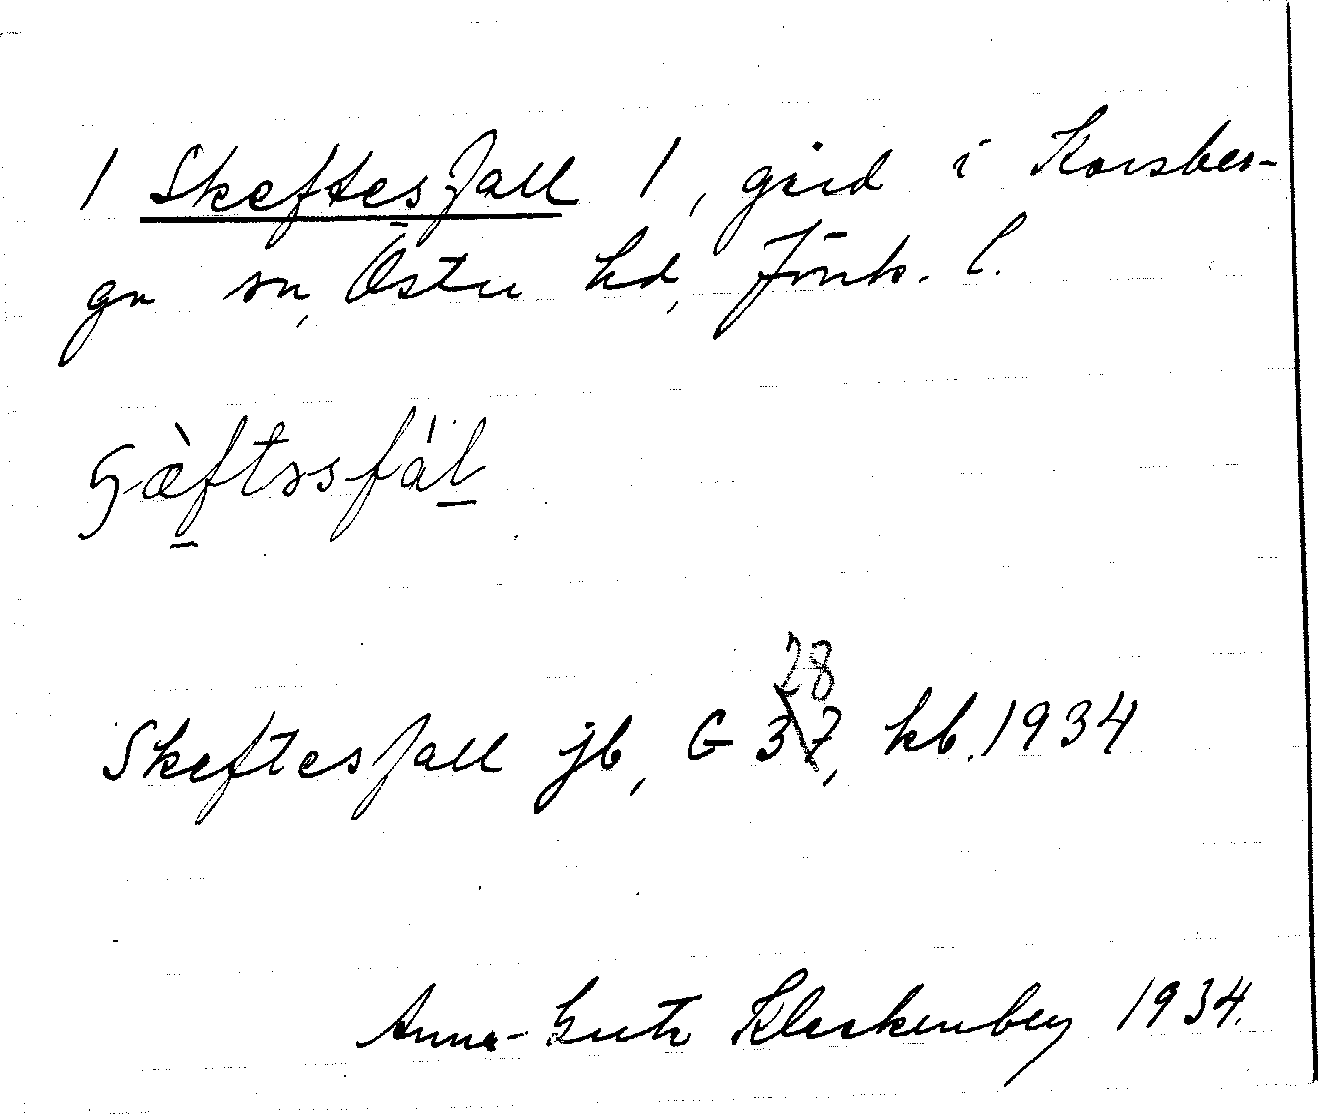 1 Skeftesfall 1, gård i Korsber-
ga sn, Östra hd, Jönk. l.
Skeftesfall jb, G 28 37, kb. 1934
Anna- 1934.